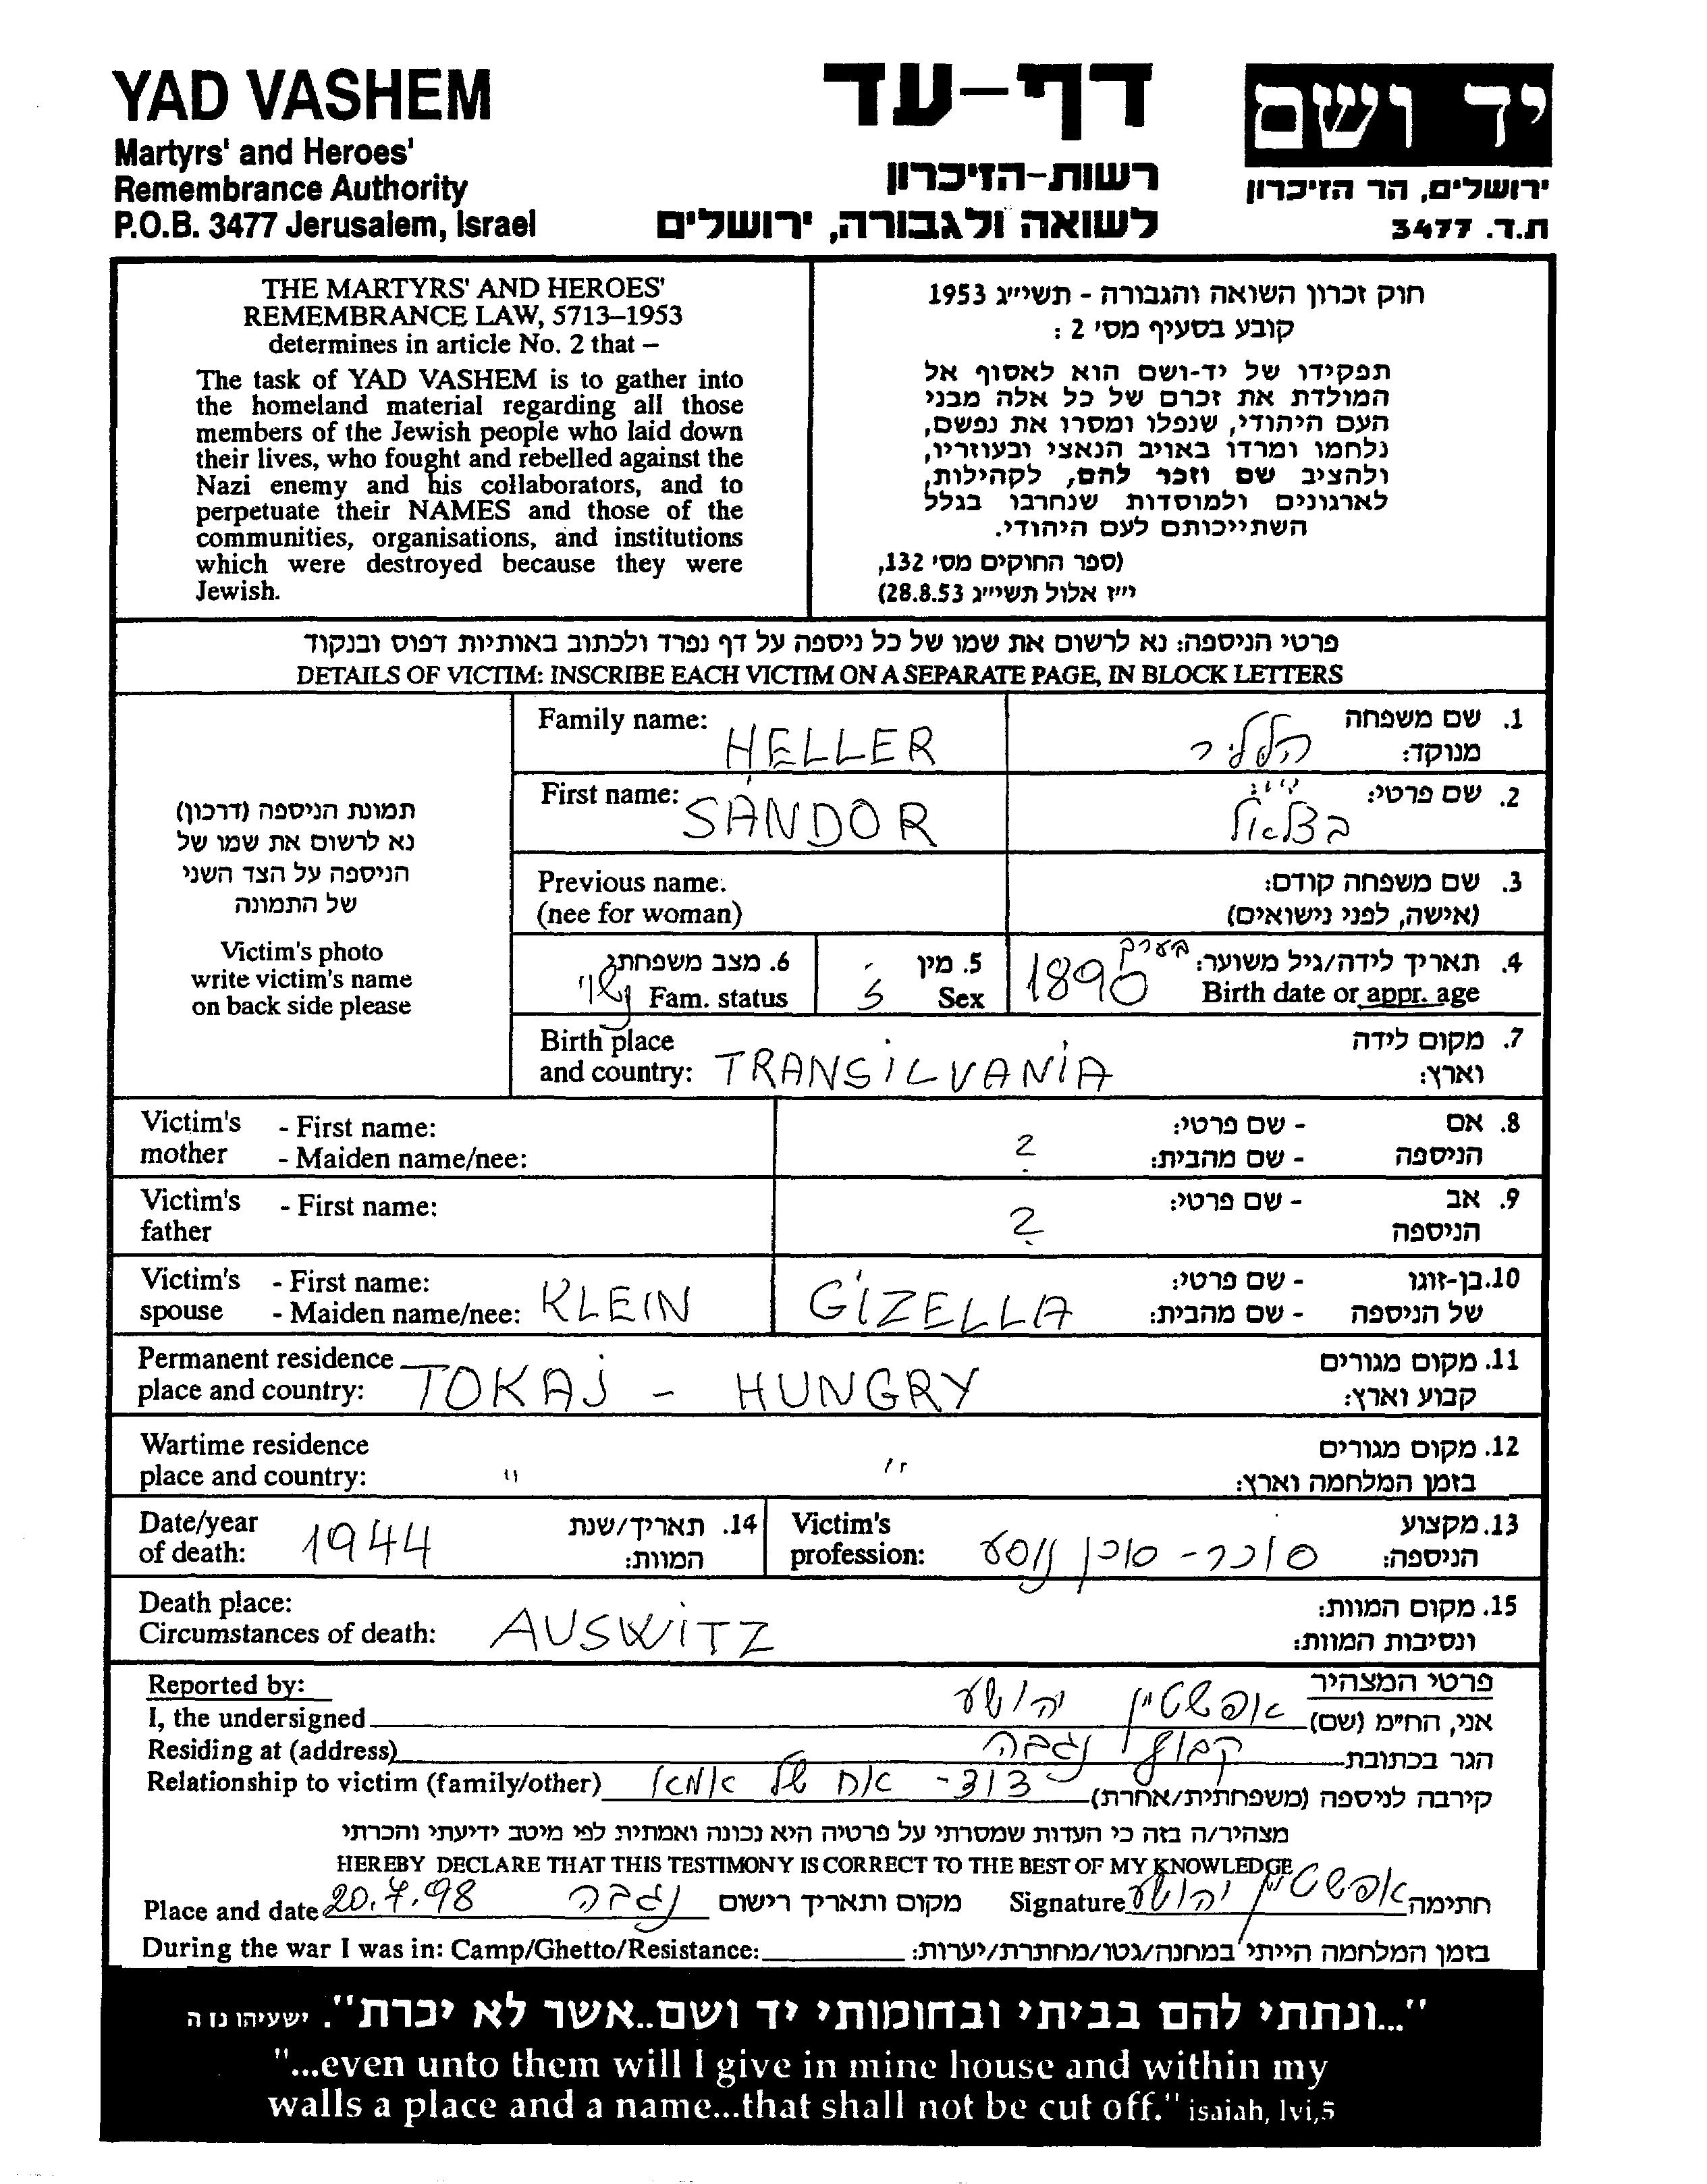 YAD VASHEM
Martyrs' and Heroes'
Remembrance Authority
P.O.B. 3477 Jerusalem, Israel
דף-עד
רשות-הזיכרון
לשואה ולגבורה, ירושלים
יד ושם
ירושלים, הר הזיכרון
ת.ד. 3477
THE MARTYRS' AND HEROES'
REMEMBRANCE LAW, 5713–1953
determines in article No. 2 that –
The task of YAD VASHEM is to gather into
the homeland material regarding all those
members of the Jewish people who laid down
their lives, who fought and rebelled against the
Nazi enemy and his collaborators, and to
perpetuate their NAMES and those of the
communities, organisations, and institutions
which were destroyed because they were
Jewish.
חוק זכרון השואה והגבורה - תשי״ג 1953
קובע בסעיף מס׳ 2 :
תפקידו של יד-ושם הוא לאסוף אל
המולדת את זכרם של כל אלה מבני
העם היהודי, שנפלו ומסרו את נפשם,
נלחמו ומרדו באויב הנאצי ובעוזריו,
ולהציב שם וזכר להם, לקהילות,
לארגונים ולמוסדות שנחרבו בגלל
השתייכותם לעם היהודי.
(ספר החוקים מס׳ 132,
י״ז אלול תשי״ג 28.8.53)
פרטי הניספה: נא לרשום את שמו של כל ניספה על דף נפרד ולכתוב באותיות דפוס ובנקוד
DETAILS OF VICTIM: INSCRIBE EACH VICTIM ON A SEPARATE PAGE, IN BLOCK LETTERS
תמונת הניספה (דרכון)
נא לרשום את שמו של
הניספה על הצד השני
של התמונה
Victim's photo
write victim's name
on back side please
Family name: HELLER
1. שם משפחה
מנוקד:
First name: SÁNDOR
2. שם פרטי:
Previous name:
(nee for woman)
3. שם משפחה קודם:
(אישה, לפני נישואים)
6. מצב משפחתי
Fam. status נשוי
5. מין
Sex ז
4. תאריך לידה/גיל משוער: בערך
Birth date or appr. age 1890
Birth place
and country: TRANSiLVANiA
7. מקום לידה
וארץ:
Victim's mother - First name:
- Maiden name/nee: ?
8. אם הניספה - שם פרטי:
- שם מהבית:
Victim's father - First name: ?
9. אב הניספה - שם פרטי:
Victim's spouse - First name:
- Maiden name/nee: KLEIN GIZELLA
10. בן-זוגו של הניספה - שם פרטי:
- שם מהבית:
Permanent residence
place and country: TOKAJ - HUNGRY
11. מקום מגורים
קבוע וארץ:
Wartime residence
place and country: " "
12. מקום מגורים
בזמן המלחמה וארץ:
Date/year
of death: 1944
14. תאריך/שנת
המוות:
Victim's
profession: סוכר-סוכן נוסע
13. מקצוע
הניספה:
Death place:
Circumstances of death: AUSWiTZ
15. מקום המוות:
ונסיבות המוות:
Reported by:
פרטי המצהיר
I, the undersigned אפשטיין יהושע אני, הח״מ (שם)
Residing at (address) קבוץ נגבה הגר בכתובת
Relationship to victim (family/other) דוד - אח של אמא קירבה לניספה (משפחתית/אחרת)
מצהיר/ה בזה כי העדות שמסרתי על פרטיה היא נכונה ואמתית לפי מיטב ידיעתי והכרתי
HEREBY DECLARE THAT THIS TESTIMONY IS CORRECT TO THE BEST OF MY KNOWLEDGE
Place and date 20.4.98 נגבה מקום ותאריך רישום Signature אפשטיין יהושע חתימה
During the war I was in: Camp/Ghetto/Resistance: בזמן המלחמה הייתי במחנה/גטו/מחתרת/יערות:
"...ונתתי להם בביתי ובחומותי יד ושם..אשר לא יכרת". ישעיהו נז ה
"...even unto them will I give in mine house and within my
walls a place and a name...that shall not be cut off." isaiah, lvi,5